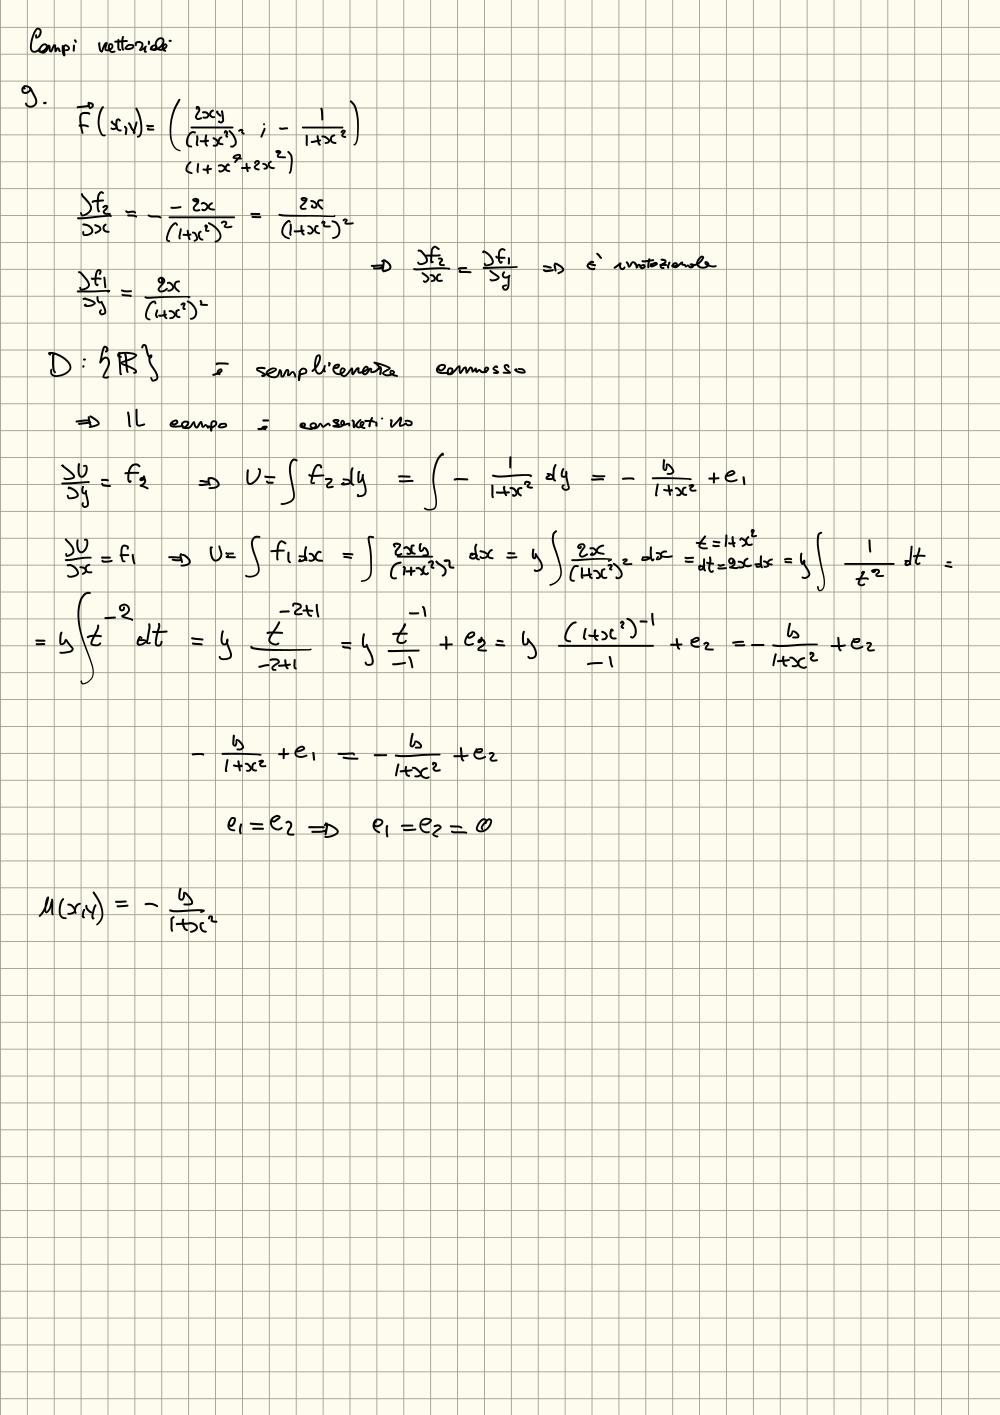 Campi vettoriali
9.
F⃗(x,y) = ( 2xy/(1+x²)² ; - 1/(1+x²) )
(1+x⁴+2x²)
∂f₂/∂x = - -2x/(1+x²)² = 2x/(1+x²)²
⇒ ∂f₂/∂x = ∂f₁/∂y ⇒ è irrotazionale
∂f₁/∂y = 2x/(1+x²)²
D : {ℝ} è semplicemente connesso
⇒ IL campo è conservativo
∂U/∂y = f₂ ⇒ U = ∫ f₂ dy = ∫ - 1/(1+x²) dy = - y/(1+x²) + c₁
∂U/∂x = f₁ ⇒ U = ∫ f₁ dx = ∫ 2xy/(1+x²)² dx = y ∫ 2x/(1+x²)² dx = t=1+x² dt=2x dx = y ∫ 1/t² dt =
= y ∫ t⁻² dt = y t⁻²⁺¹/-2+1 = y t⁻¹/-1 + c₂ = y (1+x²)⁻¹/-1 + c₂ = - y/(1+x²) + c₂
- y/(1+x²) + c₁ = - y/(1+x²) + c₂
c₁ = c₂ ⇒ c₁ = c₂ = 0
U(x,y) = - y/(1+x²)